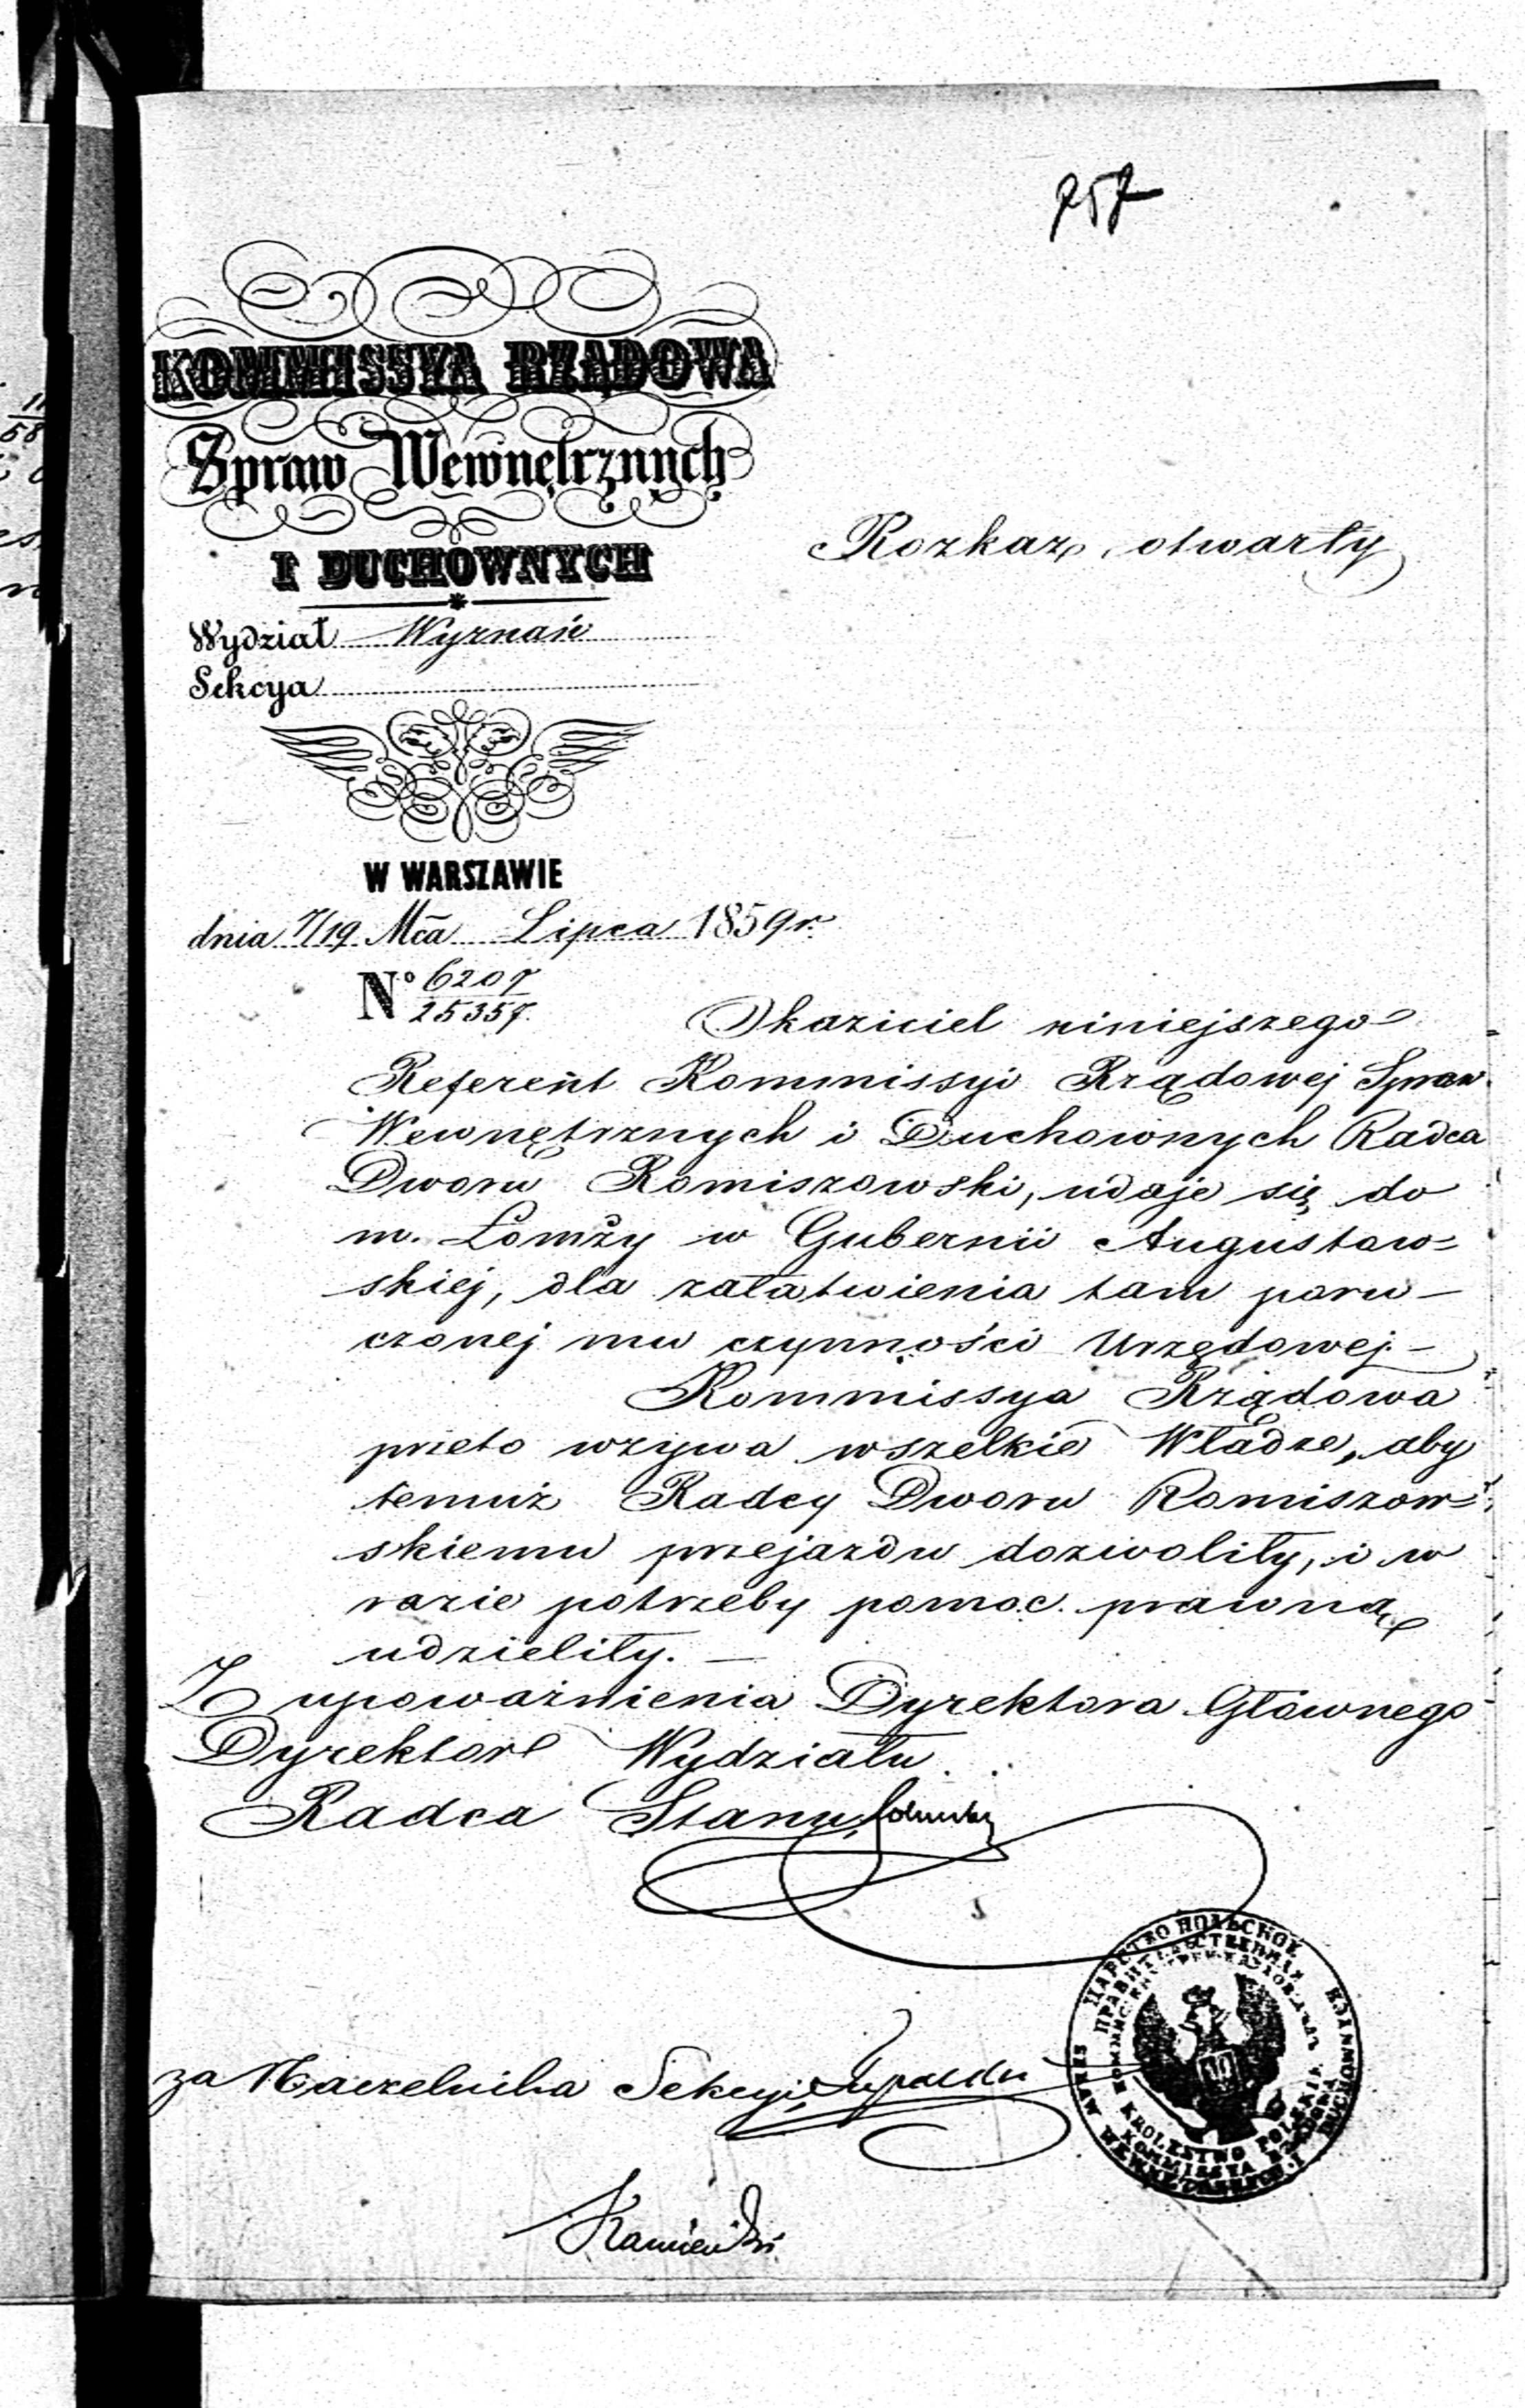 757
KOMMISSYA RZĄDOWA
Spraw Wewnętrznych
I DUCHOWNYCH
Rozkaz otwarty
Wydział Wyznań
Sekcya
W WARSZAWIE
dnia 7/19 Mca Lipca 1859 r.
No 6207/25357.
Okaziciel niniejszego
Referent Kommissyi Rządowej Spraw
Wewnętrznych i Duchownych Radca
Dworu Romiszowski, udaje się do
m. Łomży w Gubernii Augustow=
skiej, dla załatwienia tam poru-
czonej mu czynności Urzędowej.-
Kommissya Rządowa
przeto wzywa wszelkie Władze, aby
temuż Radcy Dworu Romiszow=
skiemu przejazdu dozwoliły, i w
razie potrzeby pomoc prawną
udzieliły. —
Z upoważnienia Dyrektora Głównego
Dyrektor Wydziału
Radca Stanu
za Naczelnika Sekcyi
Kamieński
ЦАРСТВО ПОЛЬСКОЕ
ПРАВИТЕЛЬСТВЕННАЯ
KROLESTWO POLSKIE
KOMMISSYA RZĄDOWA
SPRAW WEWNĘTRZNYCH I DUCHOWNYCH